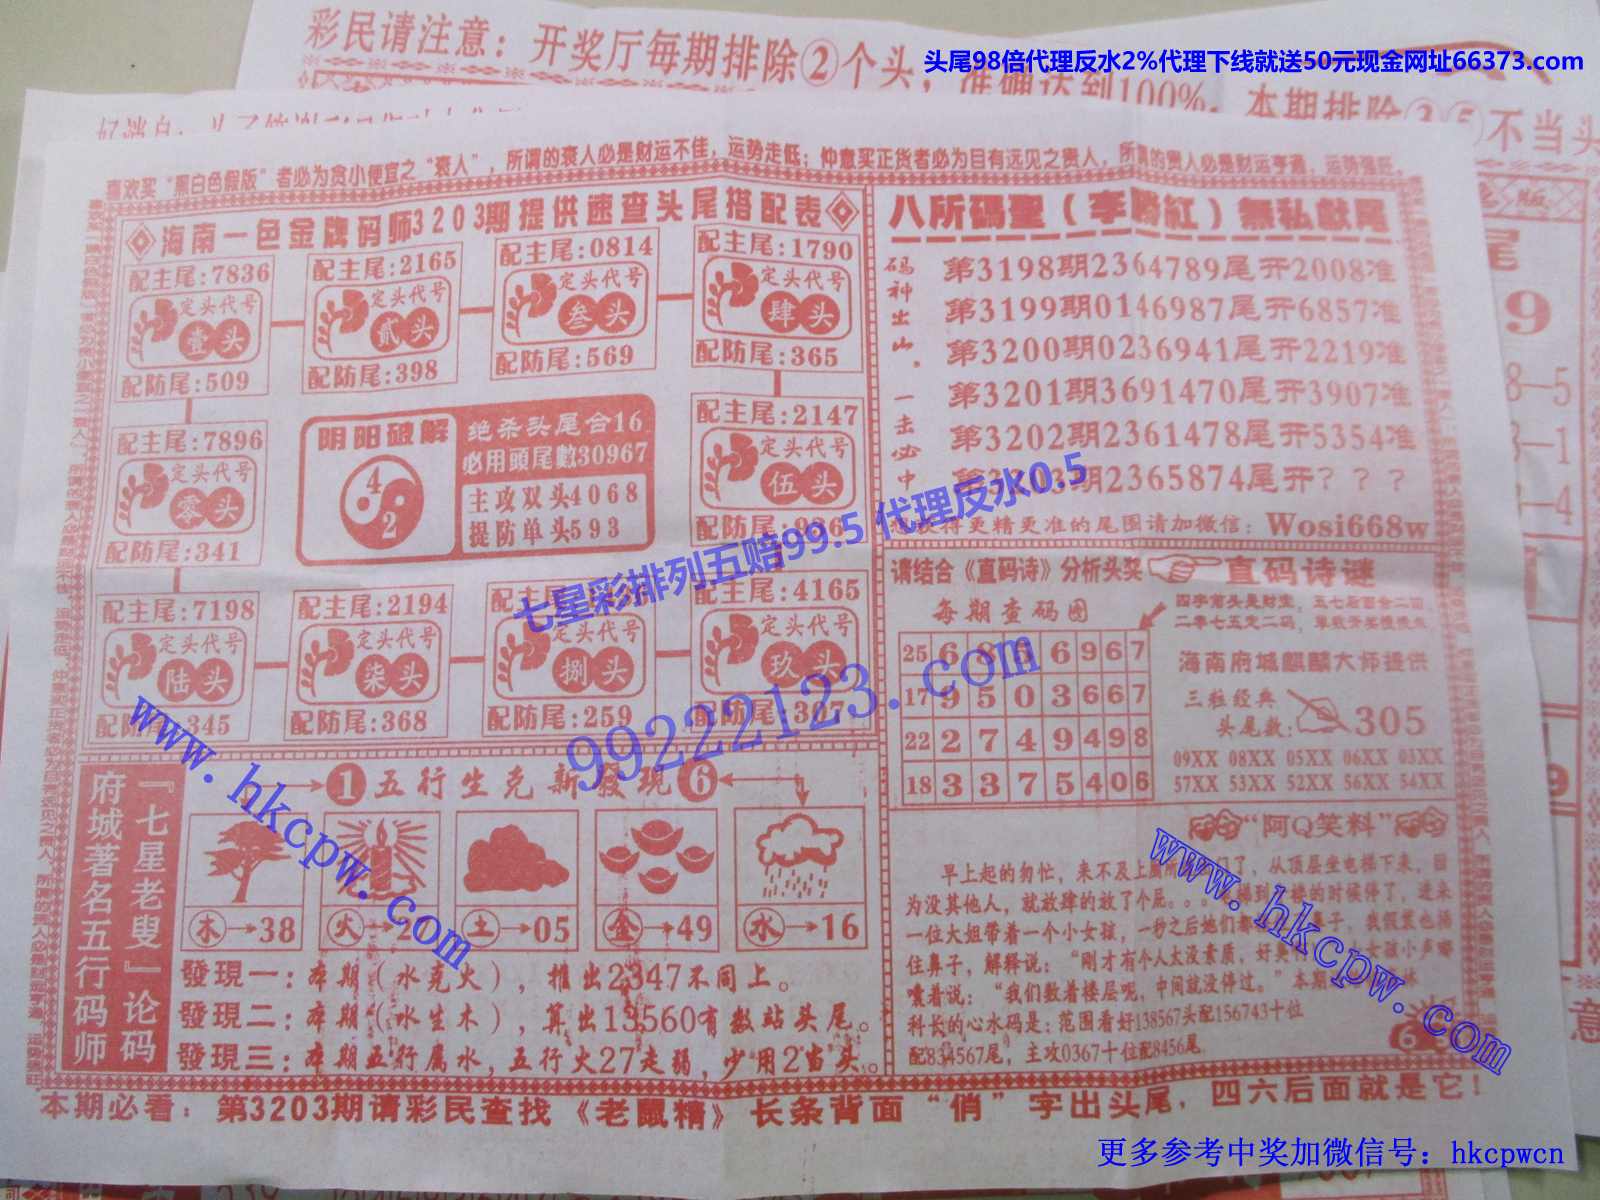 彩民请注意：开奖厅每期排除②个头，准确达到100%，本期排除③⑤不当头
头尾98倍代理反水2%代理下线就送50元现金网址66373.com
喜欢买“黑白色假版”者必为贪小便宜之“衰人”，所谓的衰人必是财运不佳，运势走低；仲意买正货者必为目有远见之贵人，所谓的贵人必是财运亨通，运势强旺。
海南一色金牌码师3203期提供速查头尾搭配表
配主尾:7836
定头代号
壹头
配防尾:509
配主尾:2165
定头代号
贰头
配防尾:398
配主尾:0814
定头代号
叁头
配防尾:569
配主尾:1790
定头代号
肆头
配防尾:365
配主尾:7896
定头代号
零头
配防尾:341
阴阳破解
4
2
绝杀头尾合16
必用頭尾數30967
主攻双头4068
提防单头593
配主尾:2147
定头代号
伍头
配防尾:
配主尾:7198
定头代号
陆头
配防尾:345
配主尾:2194
定头代号
柒头
配防尾:368
配主尾:
定头代号
捌头
配防尾:259
配主尾:4165
定头代号
玖头
配防尾:307
八所碼聖（李勝紅）無私獻尾
码神出山．一击必中
第3198期2364789尾开2008准
第3199期0146987尾开6857准
第3200期0236941尾开2219准
第3201期3691470尾开3907准
第3202期2361478尾开5354准
第3203期2365874尾开？？？
想获得更精更准的尾图请加微信：Wosi668w
七星彩排列五赔99.5 代理反水0.5
99222123.com
请结合《直码诗》分析头奖
直码诗谜
每期查码图
25 6 8 6 6 9 6 7
17 9 5 0 3 6 6 7
22 2 7 4 9 4 9 8
18 3 3 7 5 4 0 6
海南府城麒麟大师提供
三粒经典
头尾数：305
09XX 08XX 05XX 06XX 03XX
57XX 53XX 52XX 56XX 54XX
『七星老叟』论码
府城著名五行码师
1五行生克新發現6
木→38
火→2
土→05
金→49
水→16
發現一：本期（水克火），推出2347不同上。
發現二：本期（水生木），算出13560有数站头尾。
發現三：本期五行属水，五行火27走弱，少用2当头。
“阿Q笑料”
早上起的匆忙，来不及上厕所 门了，从顶层坐电梯下来，因
为没其他人，就放肆的放了个屁。。 梯到 楼的时候停了，进来
一位大姐带着一个小女孩，一秒之后她们都 鼻子，我假装也捂
住鼻子，解释说：“刚才有个人太没素质，好臭 女孩小声嘟
囔着说：“我们数着楼层呢，中间就没停过。”本期
科长的心水码是：范围看好138567头配156743十位
配834567尾，主攻0367十位配8456尾
6
本期必看：第3203期请彩民查找《老鼠精》长条背面“俏”字出头尾，四六后面就是它！
www.hkcpw.com
www.hkcpw.com
更多参考中奖加微信号：hkcpwcn